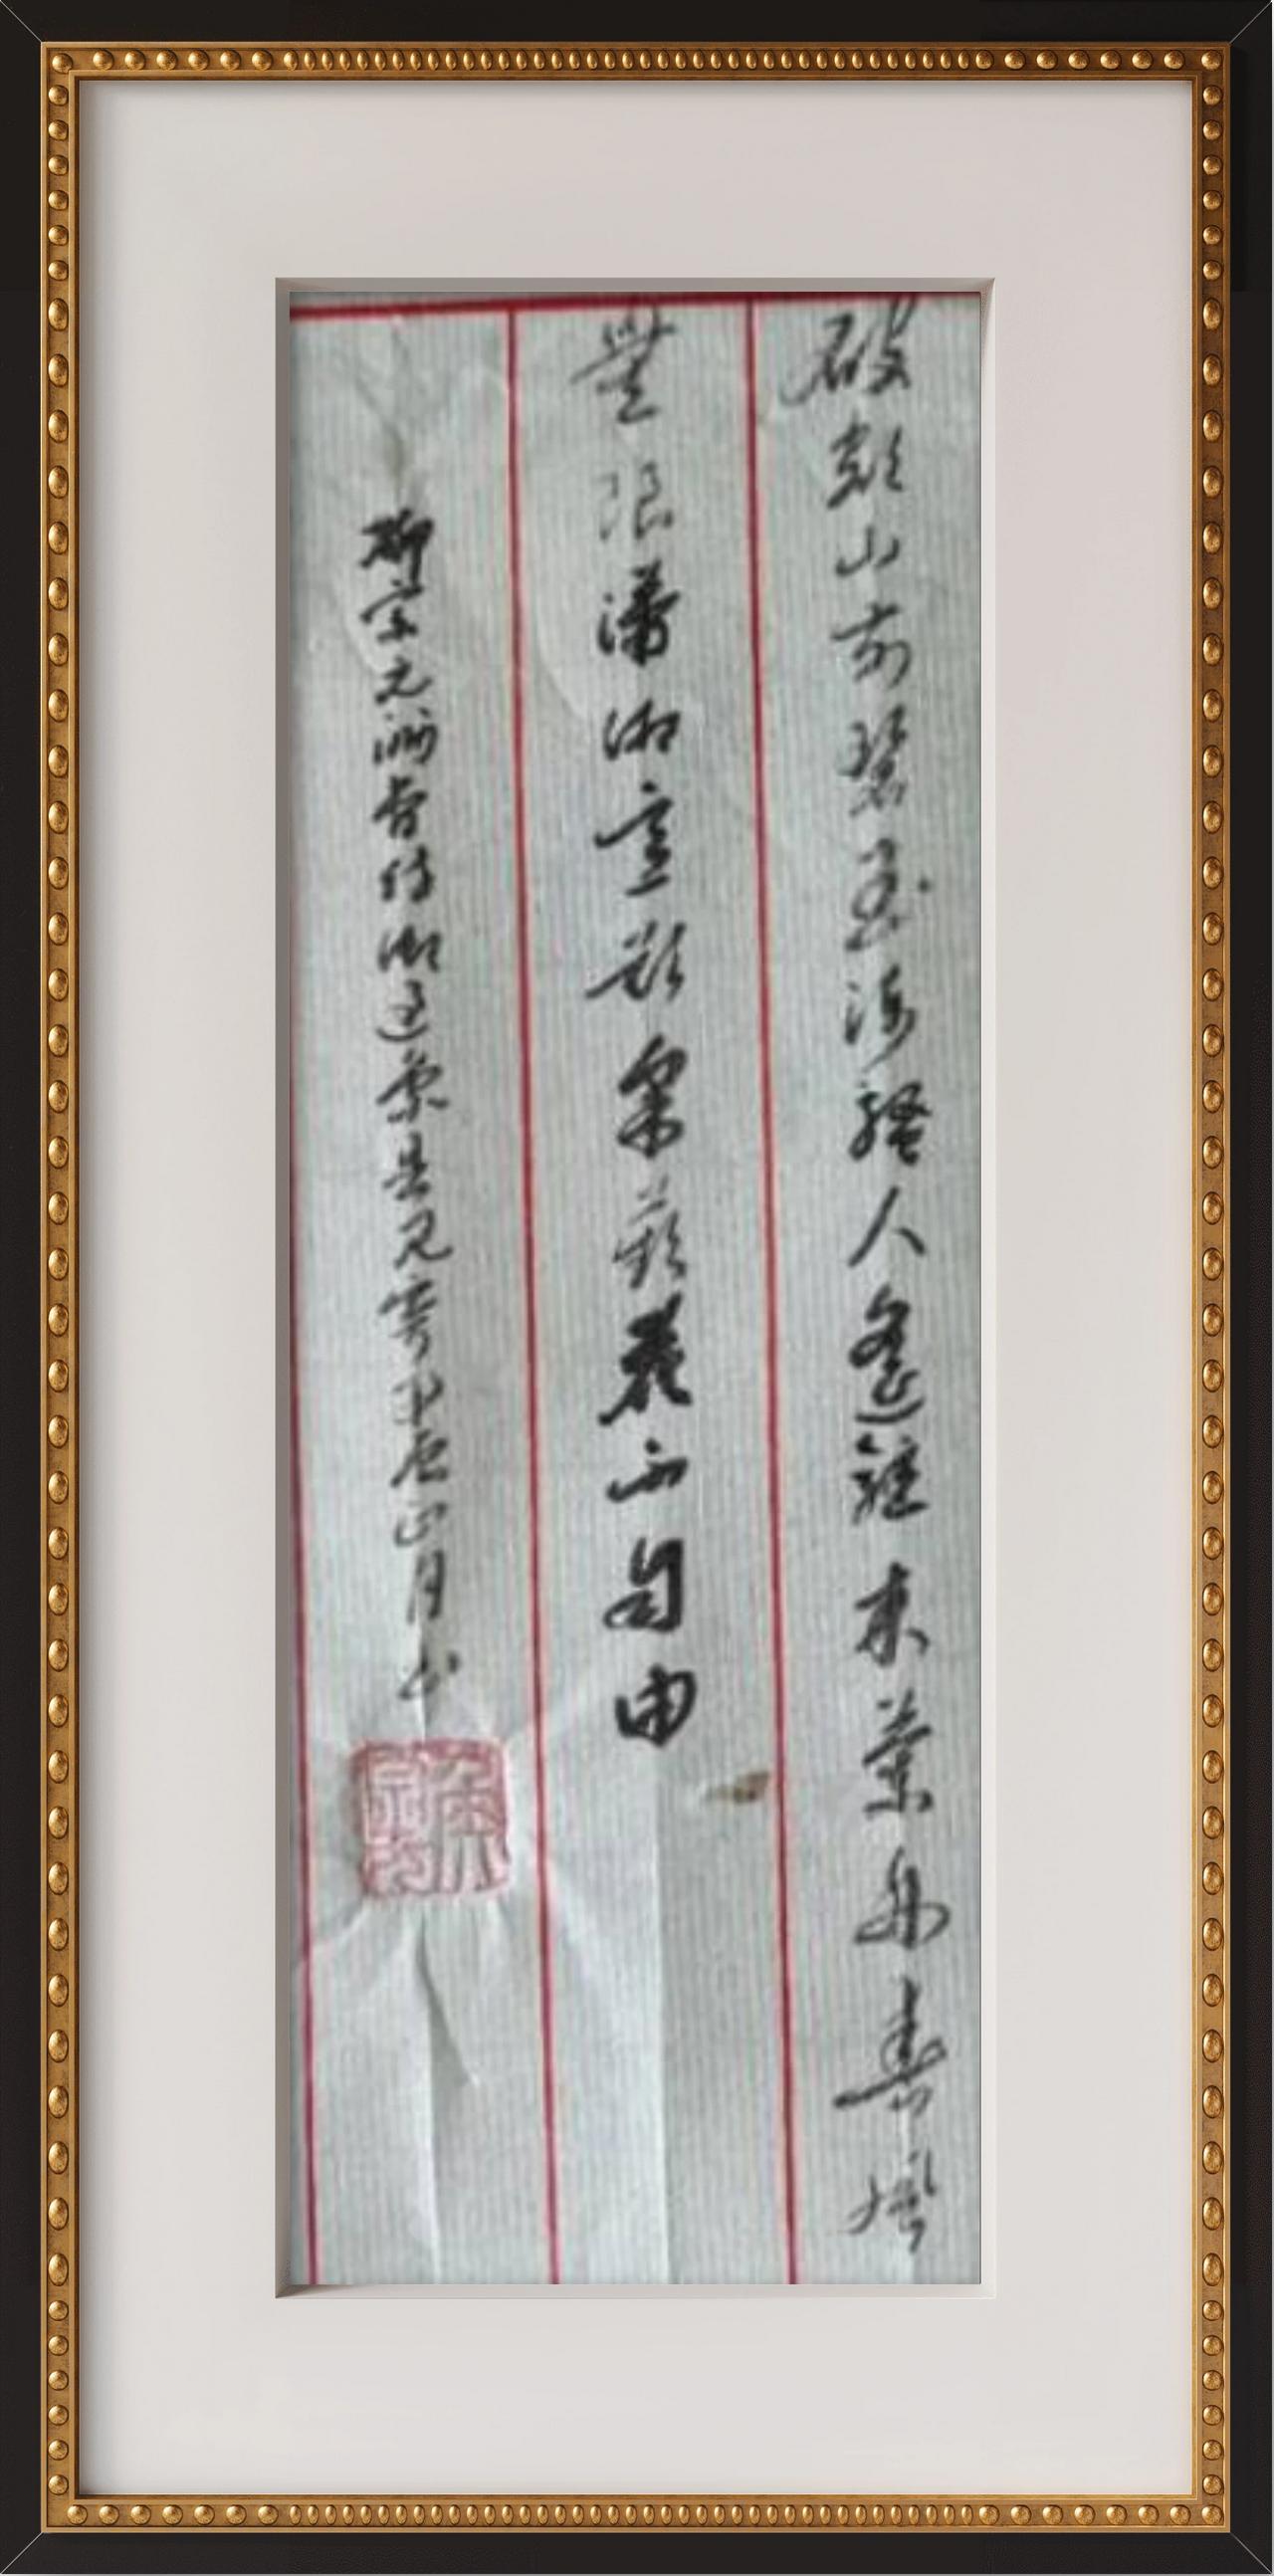 破額山前碧玉流騷人遙駐木蘭舟春風
無限瀟湘意欲采蘋花不自由
柳宗元酬曹侍御過象县見寄甲辰正月书